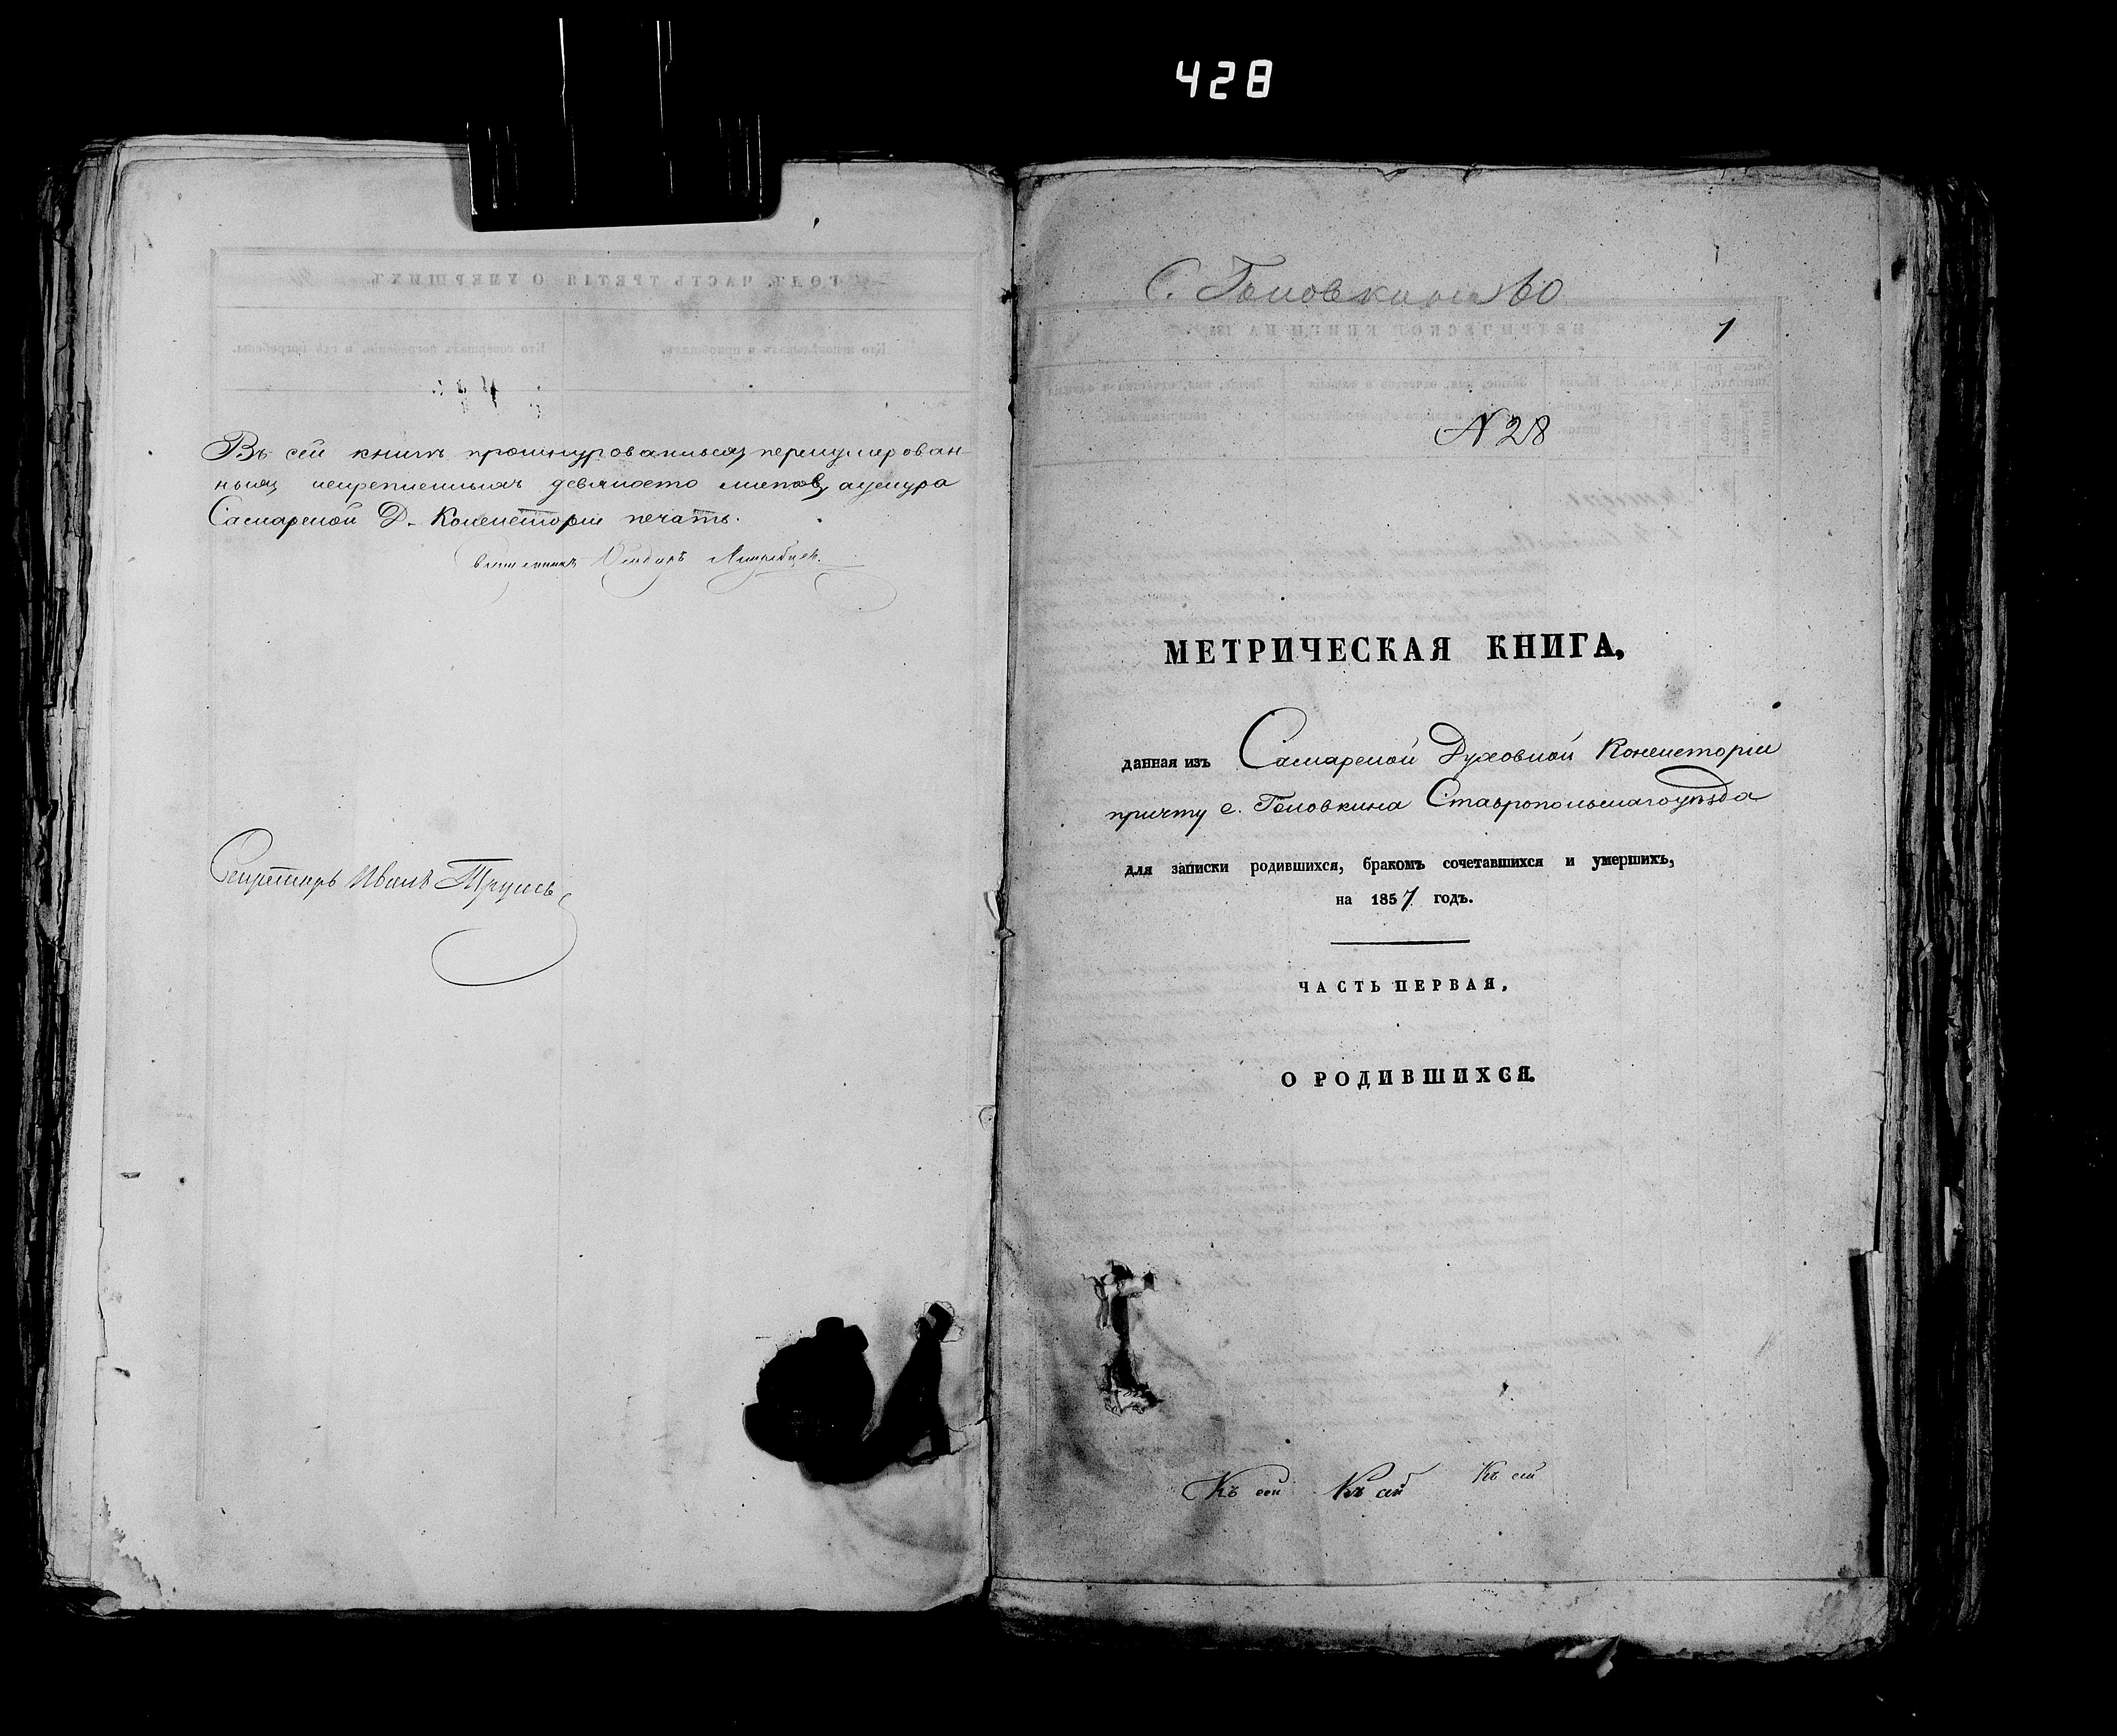 428
Въ сей книгѣ прошнурованныхъ, перенумерован-
ныхъ, скрепленныхъ девяносто листовъ, а у шнура
Самарской Д. Консисторіи печать.
Священникъ
Секретарь Иванъ
С. Головкино
1
N 28
МЕТРИЧЕСКАЯ КНИГА,
данная изъ Самарской Духовной Консисторіи
причту с. Головкина Ставропольскаго уѣзда
для записки родившихся, бракомъ сочетавшихся и умершихъ,
на 1857 годъ.
ЧАСТЬ ПЕРВАЯ,
О РОДИВШИХСЯ.
Къ сей Къ сей Къ сей